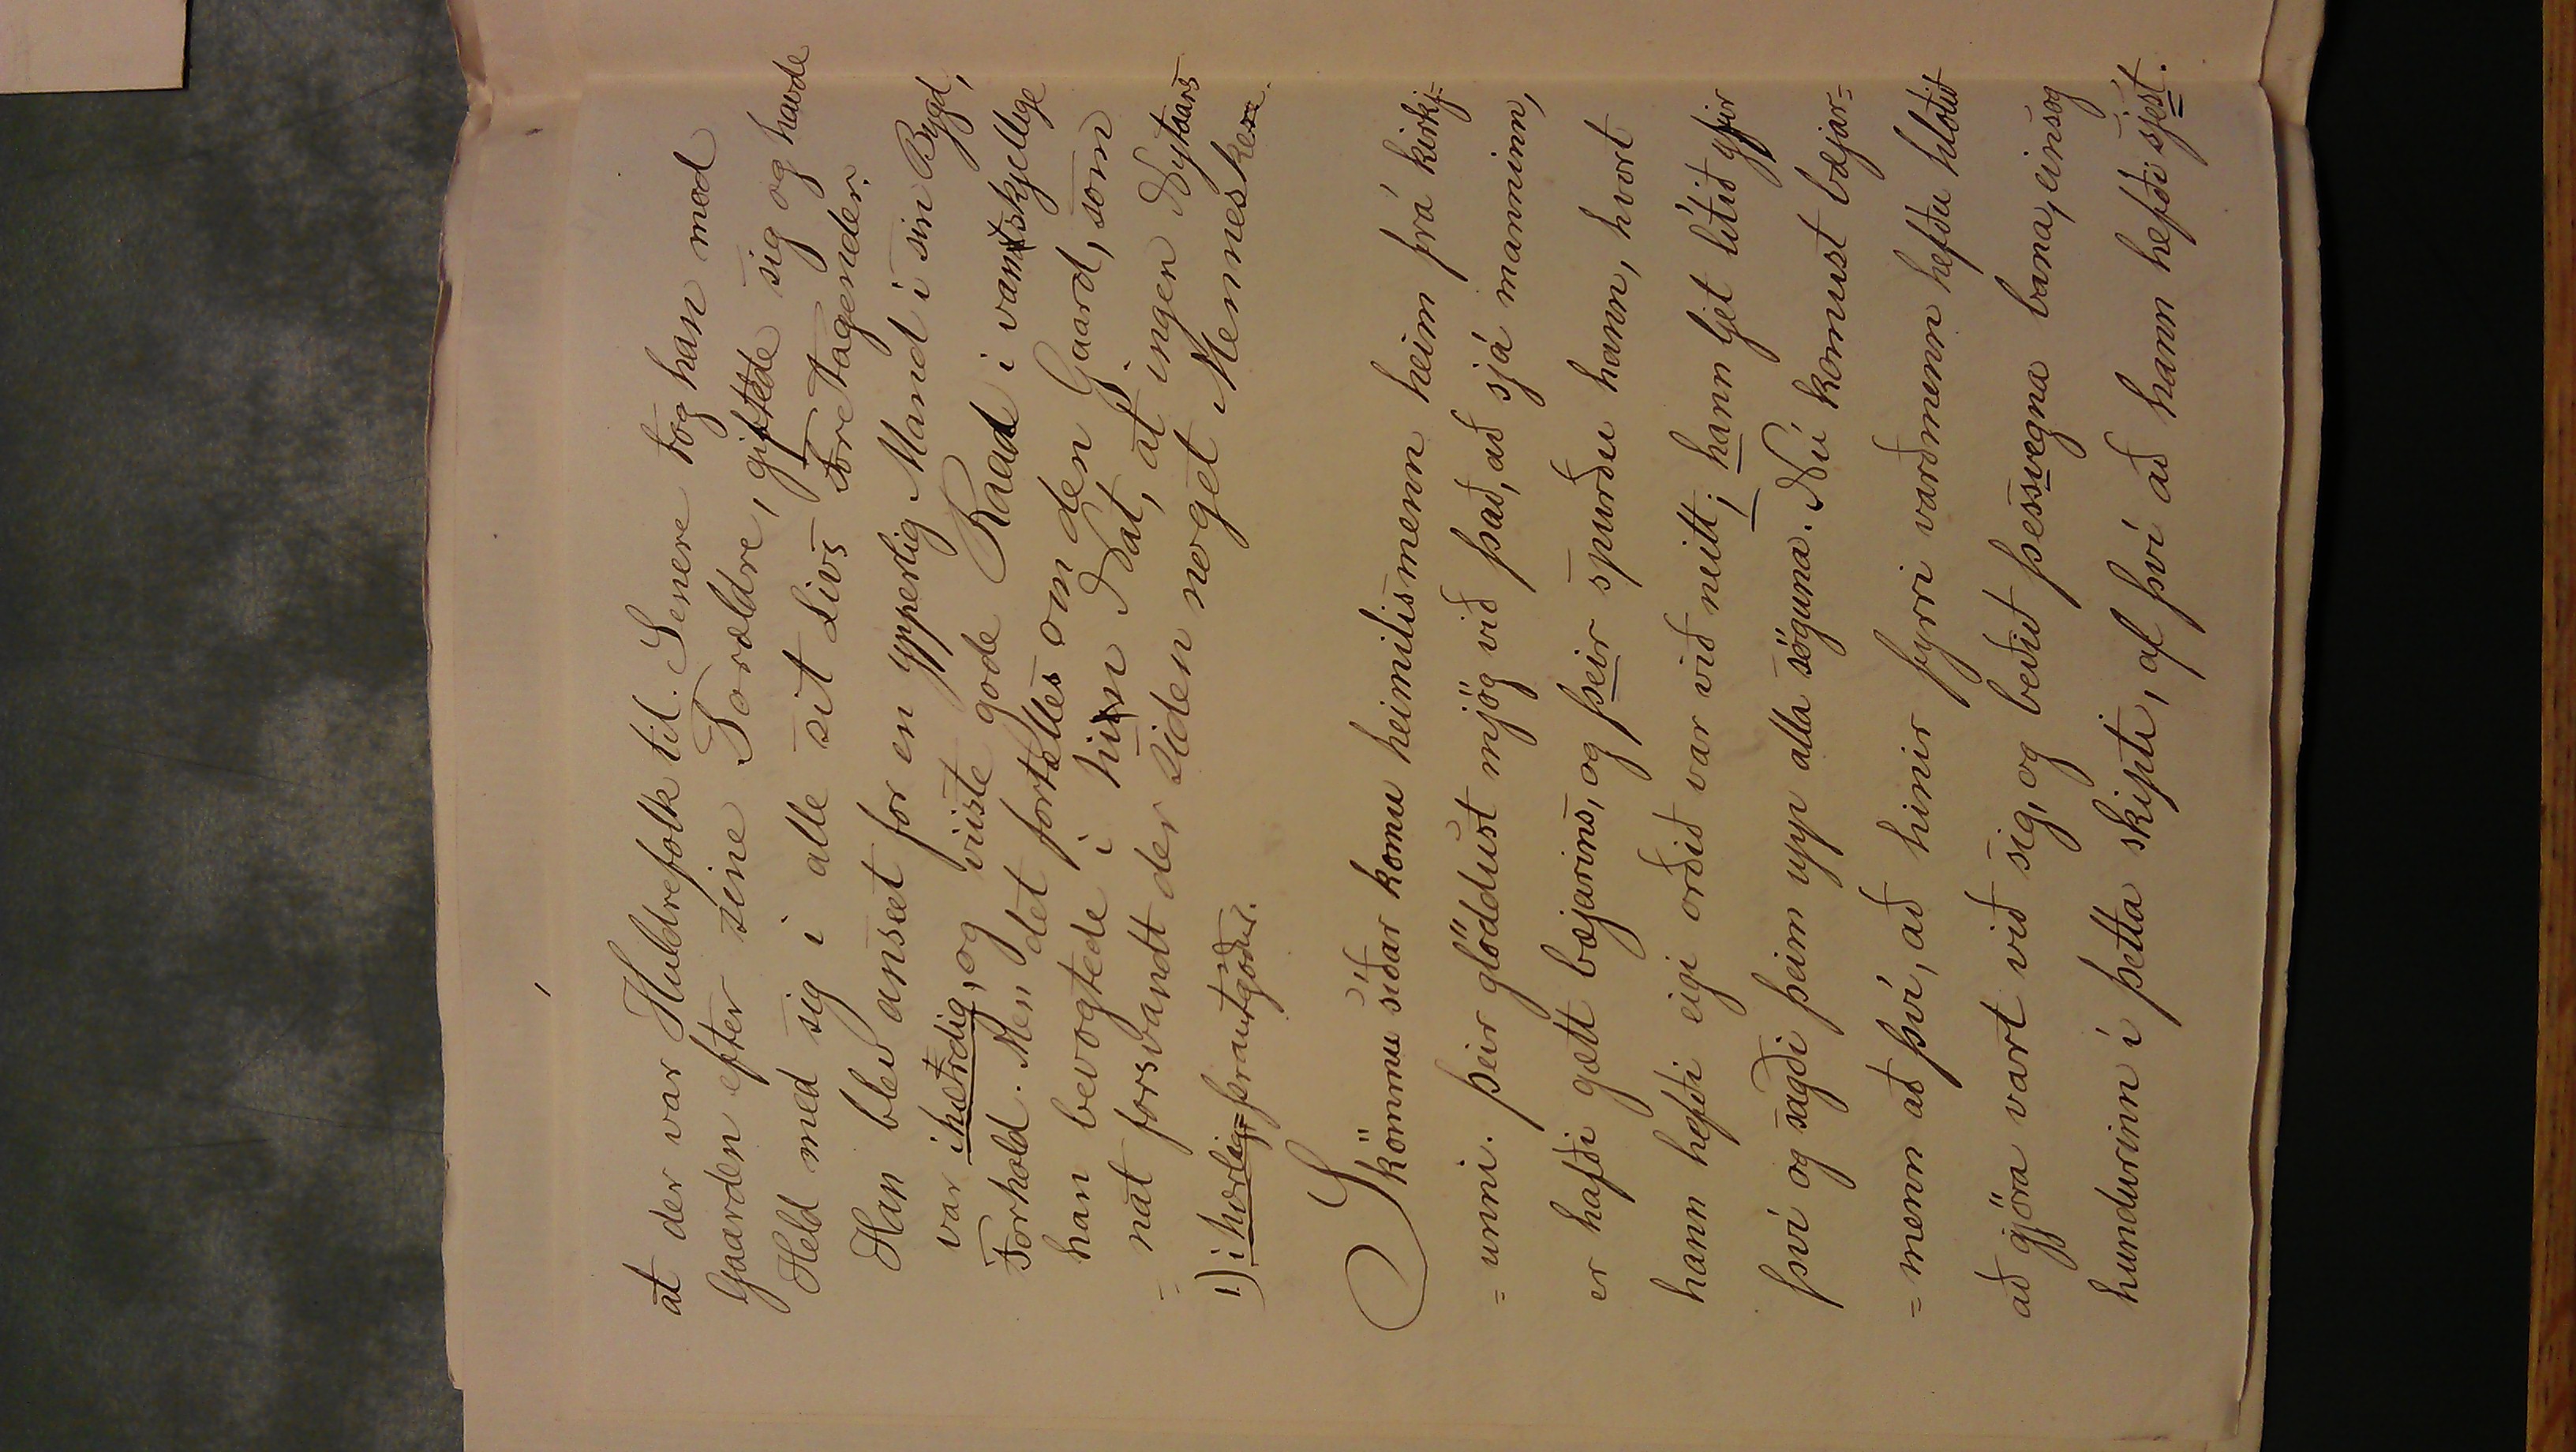 at der var Huldrefolk til. Senere tog han mod
Gaarden efter sine Forældre, giftede sig og havde
Held med sig i alle sit Livs Foretagender.
Han blev anseet for en ypperlig Mand i sin Bygd,
var ihærdig, og viiste gode Raad i vanskjellige
Forhold. Men det fortælles om den Gaard, som
han bevogtede i hin Nat, at ingen Nytaars
=nat forsvandt der siden noget Menneske.
1) ihærlig= þrautgóður.
Skömmu síðar komu heimilismenn heim frá kirkj=
=unni. Þeir glöddust mjög við það, að sjá manninn,
er hafði gætt bæjarins, og þeir spurðu hann, hvort
hann hefði eigi orðið var við neitt; hann ljet lítið yfir
því og sagði þeim upp alla söguna. Nú komust bæjar=
=menn að því, að hinir fyrri varðmenn hefðu hlotið
að gjöra vart við sig, og beðið þessvegna bana, einsog
hundurinn í þetta skipti, af því að hann hefði sjest.